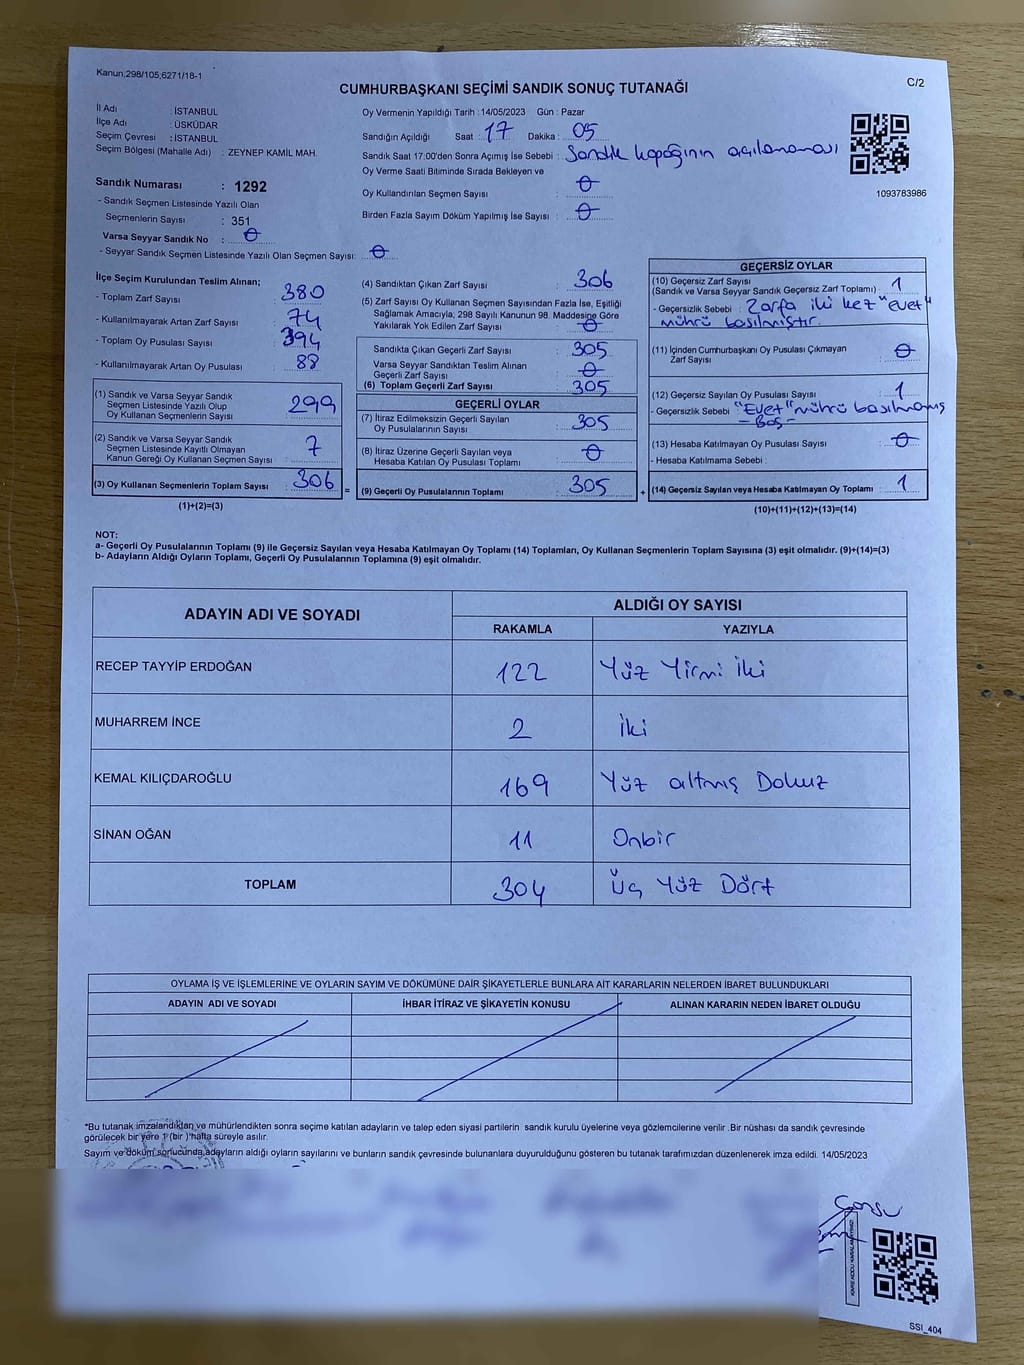 Kanun,298/105,6271/18-1
CUMHURBAŞKANI SEÇİMİ SANDIK SONUÇ TUTANAĞI
C/2
İl Adı : İSTANBUL
İlçe Adı : ÜSKÜDAR
Seçim Çevresi : İSTANBUL
Seçim Bölgesi (Mahalle Adı) : ZEYNEP KAMİL MAH.
Oy Vermenin Yapıldığı Tarih : 14/05/2023 Gün : Pazar
Sandığın Açıldığı Saat : 17 Dakika : 05
Sandık Saat 17:00'den Sonra Açımış İse Sebebi : Sandık kapağının açılamaması
Oy Verme Saati Bitiminde Sırada Bekleyen ve
Oy Kullandırılan Seçmen Sayısı : 0
Birden Fazla Sayım Döküm Yapılmış İse Sayısı : 0
1093783986
Sandık Numarası : 1292
- Sandık Seçmen Listesinde Yazılı Olan
Seçmenlerin Sayısı : 351
Varsa Seyyar Sandık No : 0
- Seyyar Sandık Seçmen Listesinde Yazılı Olan Seçmen Sayısı: 0
İlçe Seçim Kurulundan Teslim Alınan;
- Toplam Zarf Sayısı : 380
- Kullanılmayarak Artan Zarf Sayısı : 74
- Toplam Oy Pusulası Sayısı : 394
- Kullanılmayarak Artan Oy Pusulası : 88
(1) Sandık ve Varsa Seyyar Sandık
Seçmen Listesinde Yazılı Olup
Oy Kullanan Seçmenlerin Sayısı : 299
(2) Sandık ve Varsa Seyyar Sandık
Seçmen Listesinde Kayıtlı Olmayan
Kanun Gereği Oy Kullanan Seçmen Sayısı : 7
(3) Oy Kullanan Seçmenlerin Toplam Sayısı : 306
(1)+(2)=(3)
(4) Sandıktan Çıkan Zarf Sayısı : 306
(5) Zarf Sayısı Oy Kullanan Seçmen Sayısından Fazla İse, Eşitliği
Sağlamak Amacıyla, 298 Sayılı Kanunun 98. Maddesine Göre
Yakılarak Yok Edilen Zarf Sayısı : 0
Sandıkta Çıkan Geçerli Zarf Sayısı : 305
Varsa Seyyar Sandıktan Teslim Alınan
Geçerli Zarf Sayısı : 0
(6) Toplam Geçerli Zarf Sayısı : 305
GEÇERLİ OYLAR
(7) İtiraz Edilmeksizin Geçerli Sayılan
Oy Pusulalarının Sayısı : 305
(8) İtiraz Üzerine Geçerli Sayılan veya
Hesaba Katılan Oy Pusulası Toplamı : 0
= (9) Geçerli Oy Pusulalarının Toplamı : 305 +
GEÇERSİZ OYLAR
(10) Geçersiz Zarf Sayısı : 1
(Sandık ve Varsa Seyyar Sandık Geçersiz Zarf Toplamı)
- Geçersizlik Sebebi : Zarfa iki kez "evet"
mührü basılmıştır.
(11) İçinden Cumhurbaşkanı Oy Pusulası Çıkmayan
Zarf Sayısı : 0
(12) Geçersiz Sayılan Oy Pusulası Sayısı : 1
- Geçersizlik Sebebi : "Evet" mührü basılmamış
- Boş -
(13) Hesaba Katılmayan Oy Pusulası Sayısı : 0
- Hesaba Katılmama Sebebi :
(14) Geçersiz Sayılan veya Hesaba Katılmayan Oy Toplamı : 1
(10)+(11)+(12)+(13)=(14)
NOT:
a- Geçerli Oy Pusulalarının Toplamı (9) ile Geçersiz Sayılan veya Hesaba Katılmayan Oy Toplamı (14) Toplamları, Oy Kullanan Seçmenlerin Toplam Sayısına (3) eşit olmalıdır. (9)+(14)=(3)
b- Adayların Aldığı Oyların Toplamı, Geçerli Oy Pusulalarının Toplamına (9) eşit olmalıdır.
ADAYIN ADI VE SOYADI
ALDIĞI OY SAYISI
RAKAMLA YAZIYLA
RECEP TAYYİP ERDOĞAN 122 Yüz Yirmi İki
MUHARREM İNCE 2 İki
KEMAL KILIÇDAROĞLU 169 Yüz altmış Dokuz
SİNAN OĞAN 11 Onbir
TOPLAM 304 Üç Yüz Dört
OYLAMA İŞ VE İŞLEMLERİNE VE OYLARIN SAYIM VE DÖKÜMÜNE DAİR ŞİKAYETLERLE BUNLARA AİT KARARLARIN NELERDEN İBARET BULUNDUKLARI
ADAYIN ADI VE SOYADI İHBAR İTİRAZ VE ŞİKAYETİN KONUSU ALINAN KARARIN NEDEN İBARET OLDUĞU
*Bu tutanak imzalandıktan ve mühürlendikten sonra seçime katılan adayların ve talep eden siyasi partilerin sandık kurulu üyelerine veya gözlemcilerine verilir .Bir nüshası da sandık çevresinde
görülecek bir yere 1 (bir ) hafta süreyle asılır.
Sayım ve döküm sonucunda,adayların aldığı oyların sayılarını ve bunların sandık çevresinde bulunanlara duyurulduğunu gösteren bu tutanak tarafımızdan düzenlenerek imza edildi. 14/05/2023
SSI_404